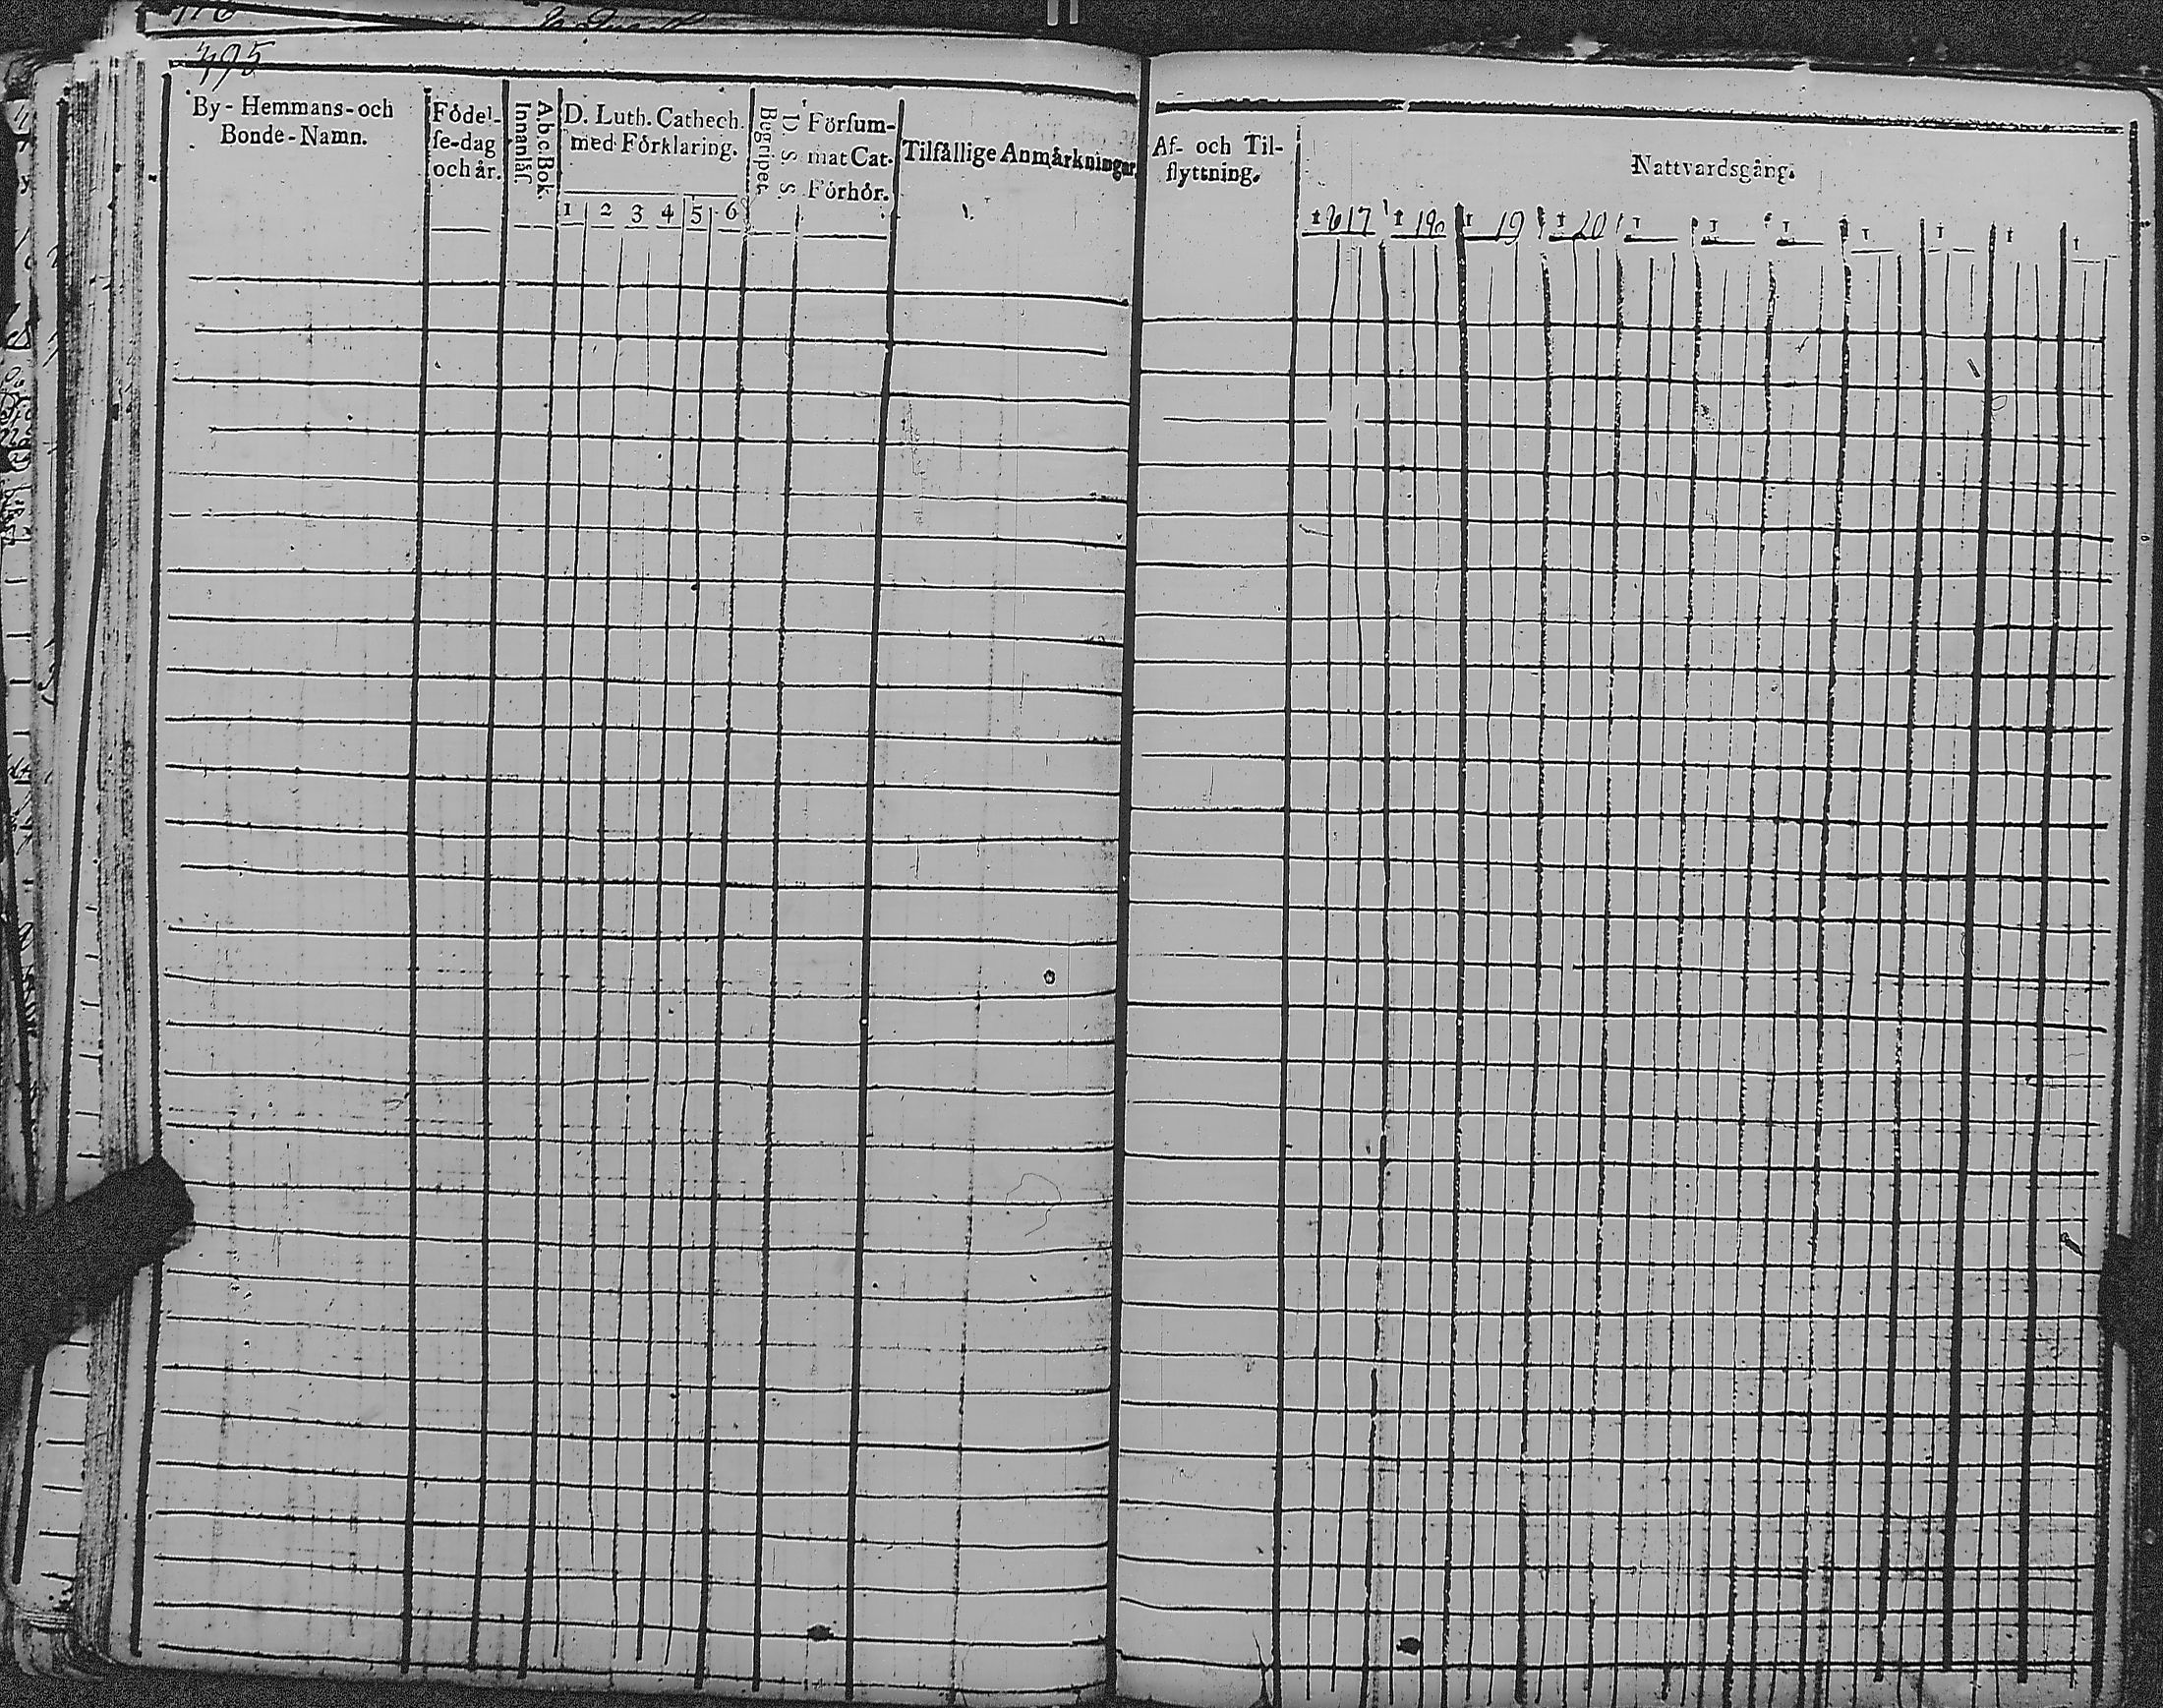 495
By- Hemmans- och
Bonde-Namn.
Födel-
ſe-dag
och år.
Abc Bok.
Innanläſ.
D. Luth. Cathech.
med Förklaring.
1 2 3 4 5 6
Begripet.
D. S. S.
Förſum-
mat Cat.
Förhör.
Tilfällige Anmärkningar.
Af- och Til-
flyttning.
Nattvardsgång.
1817 1 19 1 20 1 1 1 1 1 1 1